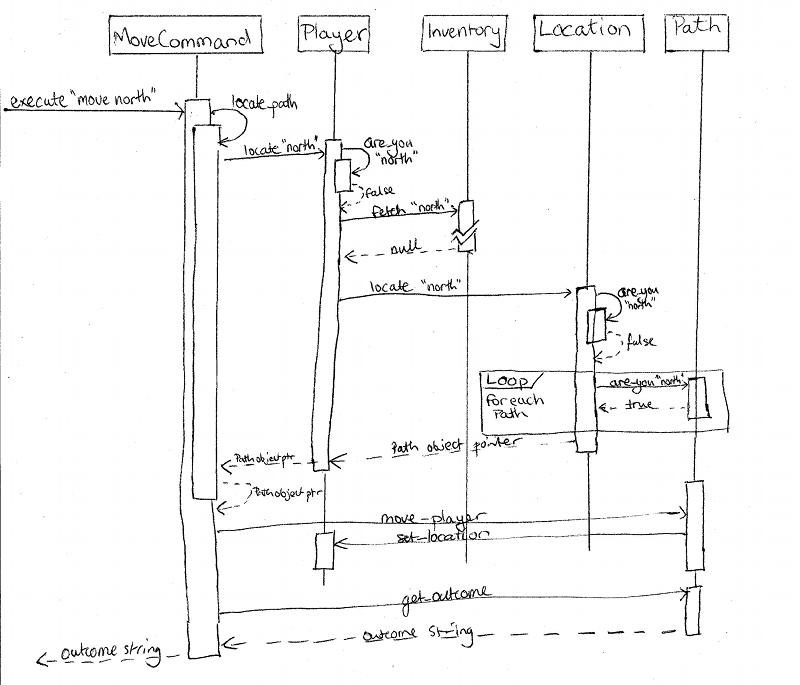 MoveCommand
Player
Inventory
Location
Path
execute "move north"
locate_path
locate "north"
are_you
"north"
false
fetch "north"
null
locate "north"
are_you
"north"
false
Loop
foreach
Path
are_you "north"
true
Path object pointer
Path object ptr
Path object ptr
move_player
set_location
get_outcome
outcome string
outcome string